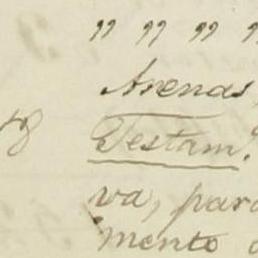 " " " "
Arenas,
Testam.
va, para
mento